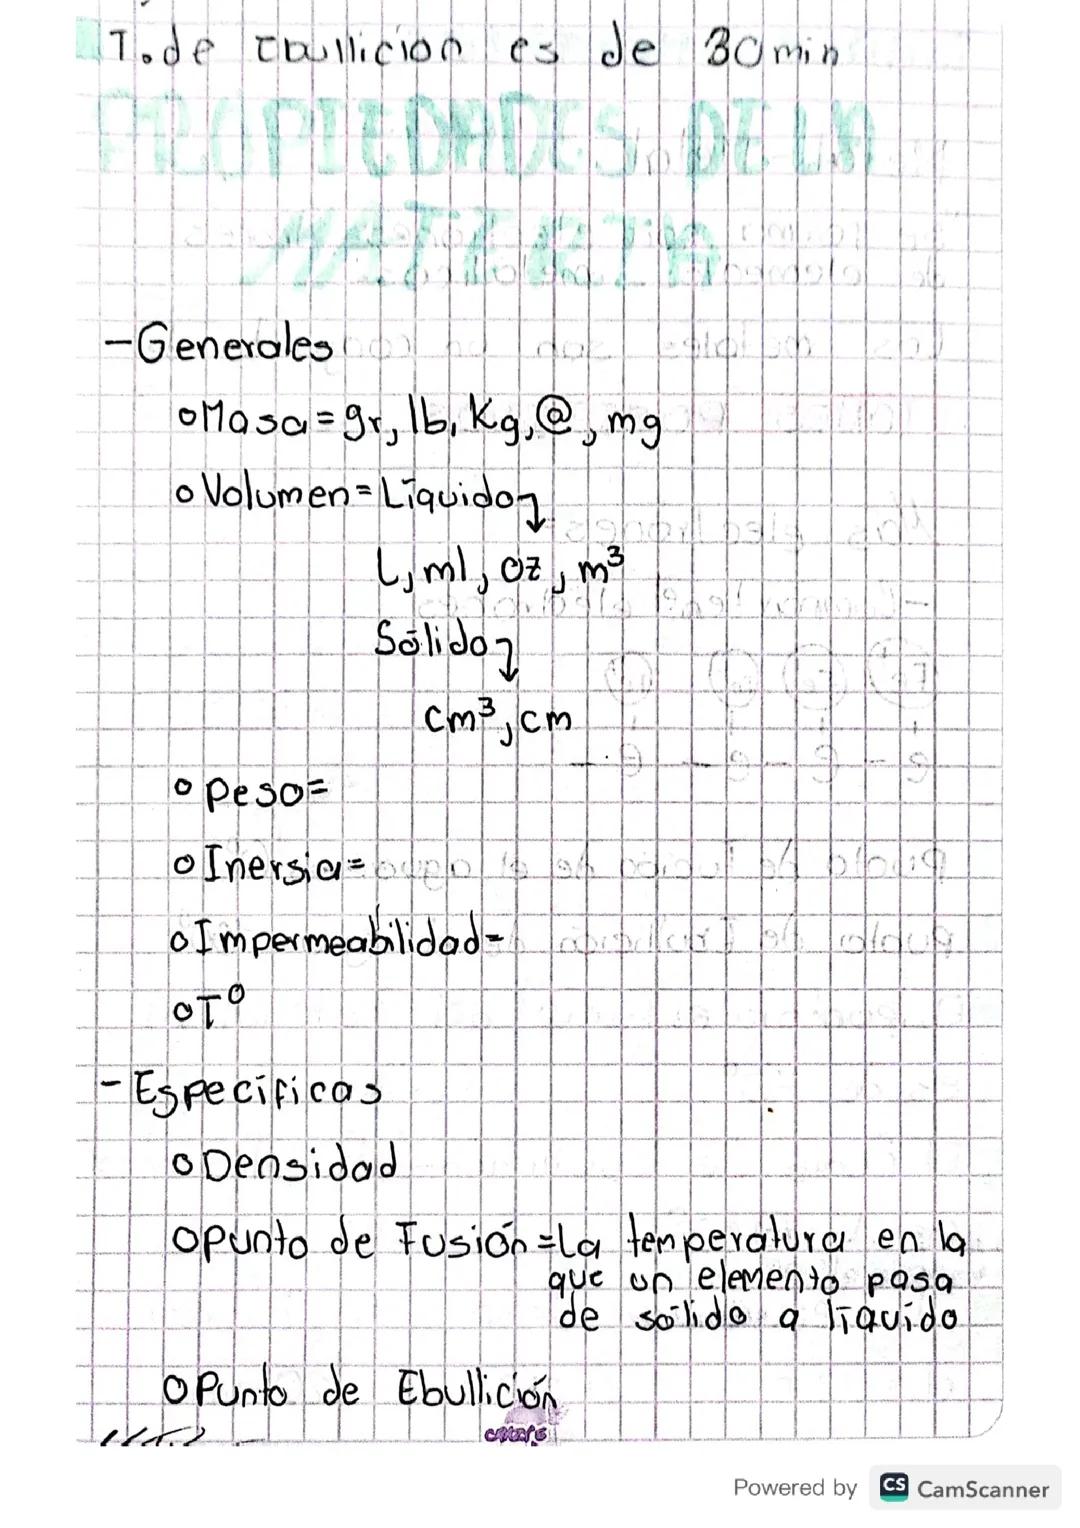 T. de Ebullicion es de 30min
PROPIEDADES DE LA
MATERIA
- Generales
o Masa = gr, lb, Kg, @, mg
o Volumen = Líquido ↴
L, ml, oz, m³
Sólido ↴
cm³, cm
o peso=
o Inersia=
o Impermeabilidad=
o T°
- Específicas
o Densidad
o punto de Fusión = La temperatura en la
que un elemento pasa
de sólido a líquido
o Punto de Ebullición
Powered by CS CamScanner